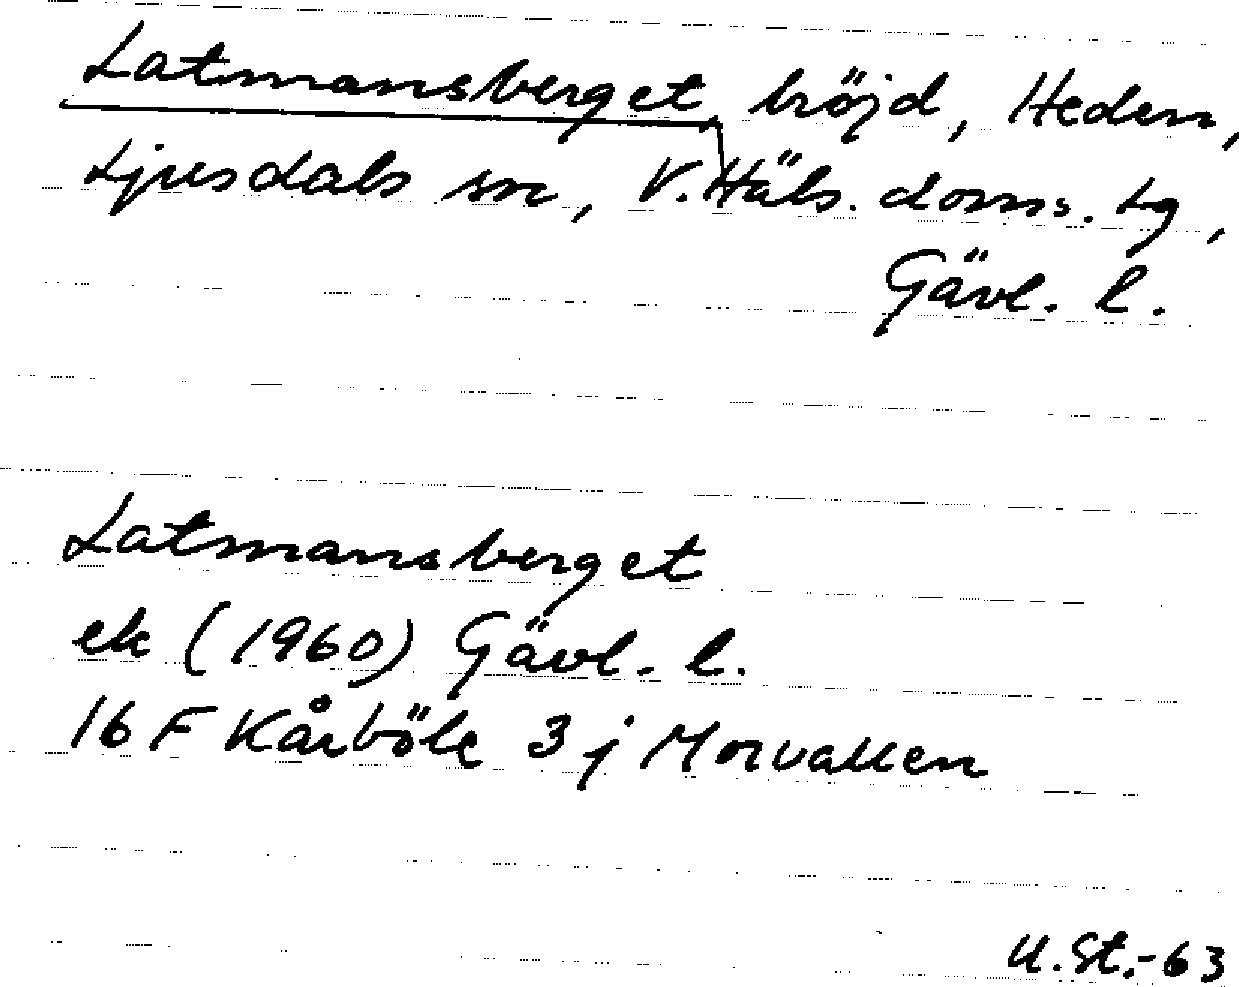 Latmansberget, höjd, Heden,
Ljusdals sn, V. Häls. doms. tg,
Gävl. l.
Latmansberget
ek (1960) Gävl. l.
16 F Kårböle 3 j Morvallen
U. St. -63